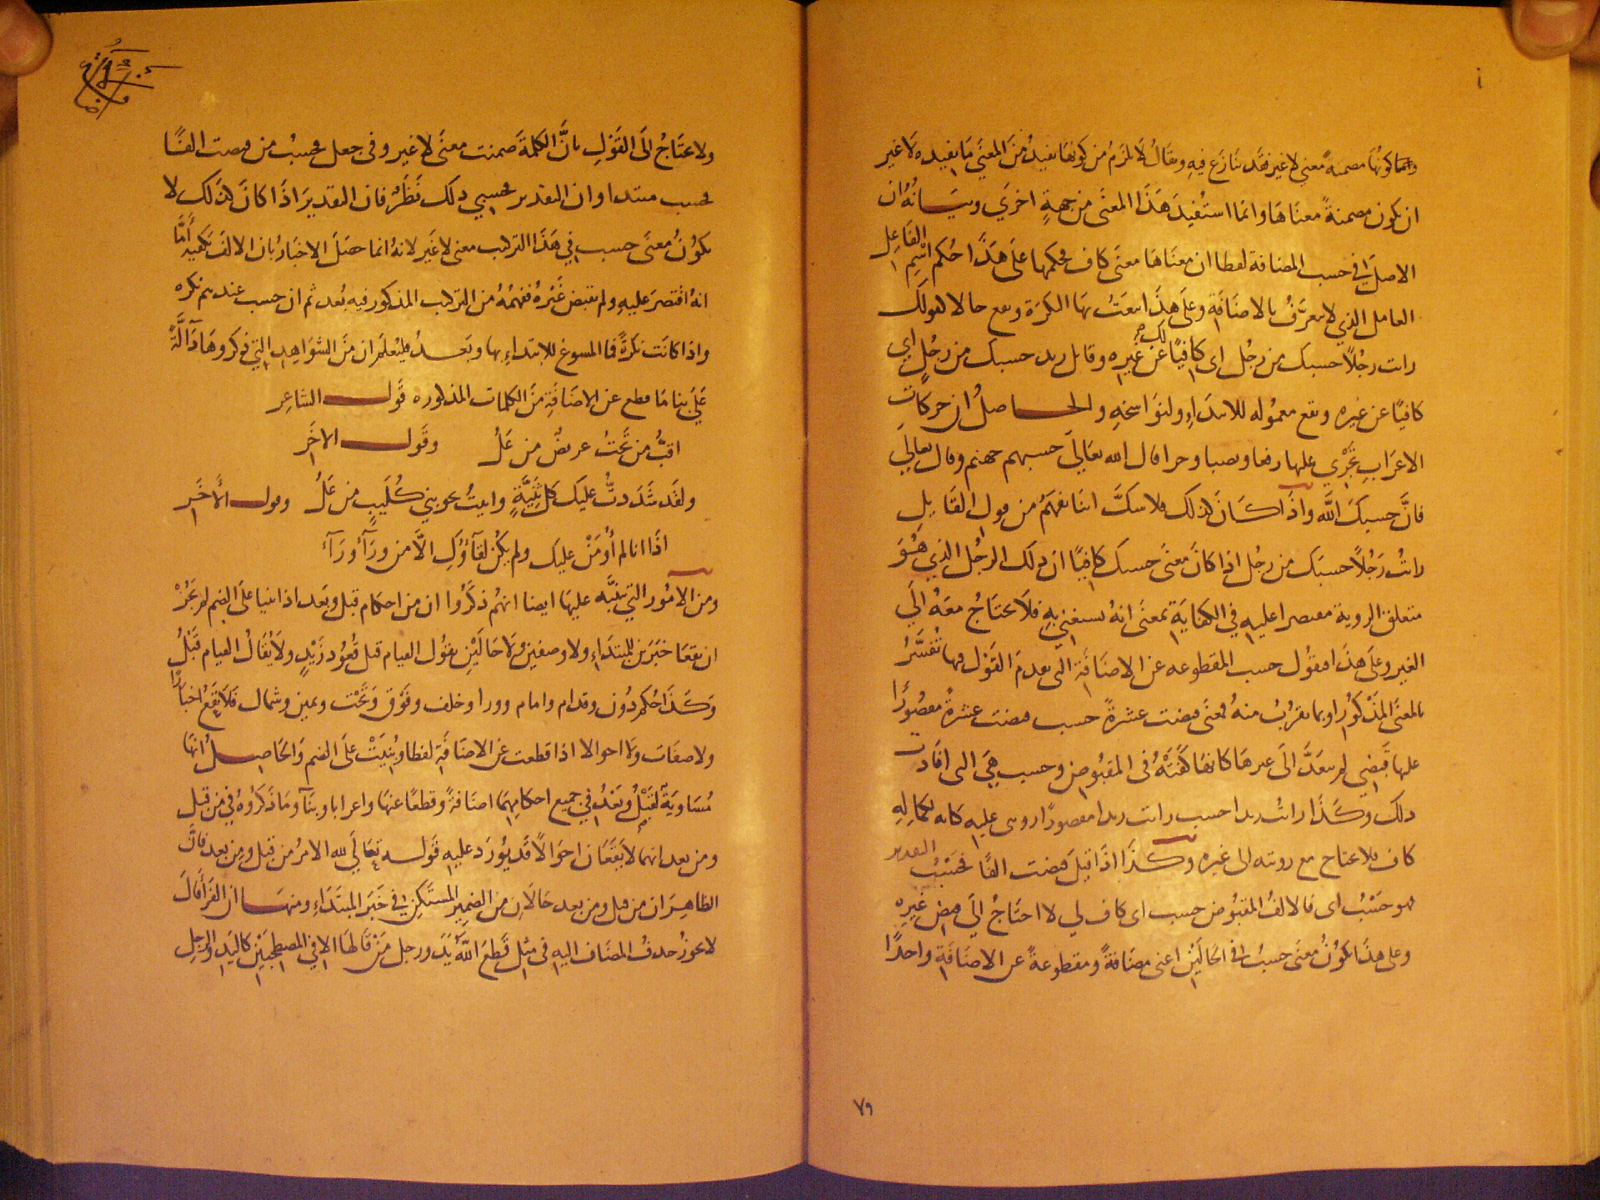 وأما كونها مضمنة معنى لا غير فقد ننازع فيه ويقال لا يلزم من كونها تفيد من المعنى ما يفيده لا غير
ان يكون مضمنة معناها وانما استفيد هذا المعنى من جهة اخرى وبيانه ان
الاصل في حسب المضافة لفظا ان معناها معنى كاف فحكمها على هذا حكم اسم الفاعل
العامل الذي لا يتعرف بالاضافة وعلى هذا نعت بها النكرة وتقع حالا لقولك
رايت رجلا حسبك من رجل اى كافيا لك عن غيره وقابل زيد حسبك من رجل اى
كافيا عن غيره وتقع معمولة للابتداء ولنواسخه والحاصل ان حركات
الاعراب تجرى عليها رفعا ونصبا وجرا قال الله تعالى حسبهم جهنم وقال تعالى
فان حسبك الله واذا كان كذلك فلا شك اننا نفهم من قول القايل
رايت رجلا حسبك من رجل اذا كان معنى حسبك كافيا ان ذلك الرجل الذي هو
متعلق الروية مقتصرا عليه في الكفاية بمعنى انه يستغنى به فلا يحتاج معه الى
الغير وعلى هذا فنقول حسب المقطوعه عن الاضافة التى تقدم القول فيها تفسر
بالمعنى المذكور او بما يقرب منه فمعنى قبضت عشرة حسب قبضت عشرة مقصورا
عليها قبضي لم يتعد الى غيرها كانها كفته في المقبوض وحسب هي التى افادت
ذلك وكذا رايت زيدا حسب رايت زيدا مقصورا روى عليه كانه لكماله
كاف فلا يحتاج مع رويته الى غيره وكذا اذا قيل قبضت الفا فحسب التقدير
فهو حسب اى فالالف المقبوض حسب اى كاف لي لا احتاج الى قبض غيره
وعلى هذا يكون معنى حسب في الحالين اعنى مضافة ومقطوعة عن الاضافة واحدا
٧٩
ولا يحتاج الى القول بان الكلمة ضمنت معنى لا غير وفي جعل فحسب من قبضت الفا
فحسب مبتدا وان التقدير فحسبي ذلك نظر فان التقدير اذا كان كذلك لا
يكون معنى حسب في هذا التركيب معنى لا غير لانه انما حصل الاخبار بان الالف تكفيه أما
انه اقتصر عليه ولم يقبض غيره ففهمه من التركيب المذكور فيه بعد ثم ان حسب عندهم نكره
واذا كانت نكرة فما المسوغ للابتداء بها وبعد فليعلم ان من الشواهد التي ذكروها دالة
على بنا ما قطع عن الاضافة من الكلمات المذكوره قول الشاعر
اقب من تحت عريض من عل وقول الاخر
ولقد شددت عليك كل ثنية واتيت نحو بني كليب من عل وقول الاخر
اذا انا لم أومن عليك ولم يكن لقاؤك الا من ورآء ورآء
ومن الأمور التي ننبه عليها ايضا انهم ذكروا ان من احكام قبل وبعد اذا بنيا على الضم لم يجز
ان يقعا خبرين للمبتداء ولا وصفين ولا حالين بقول القيام قبل قعود زيد ولا يقال القيام قبل
وكذا حكم دون وقدام وامام وورا وخلف وفوق وتحت ويمين وشمال فلا تقع اخبارا
ولا صفات ولا احوالا اذا قطعت عن الاضافة لفظا وبنيت على الضم والحاصل انها
مساوية لقبل وبعد في جميع احكامهما اضافة وقطعا عنها واعرابا وبنآ وما ذكروه في من قبل
ومن بعد انهما لا يقعان احوالا قد يورد عليه قوله تعالى لله الامر من قبل ومن بعد فان
الظاهر ان من قبل ومن بعد حالان من الضمير المستكن في خبر المبتداء ومنها ان الفرا قال
لا يجوز حذف المضاف اليه في مثل قطع الله يد ورجل من قالها الا في المصطحبين كاليد والرجل